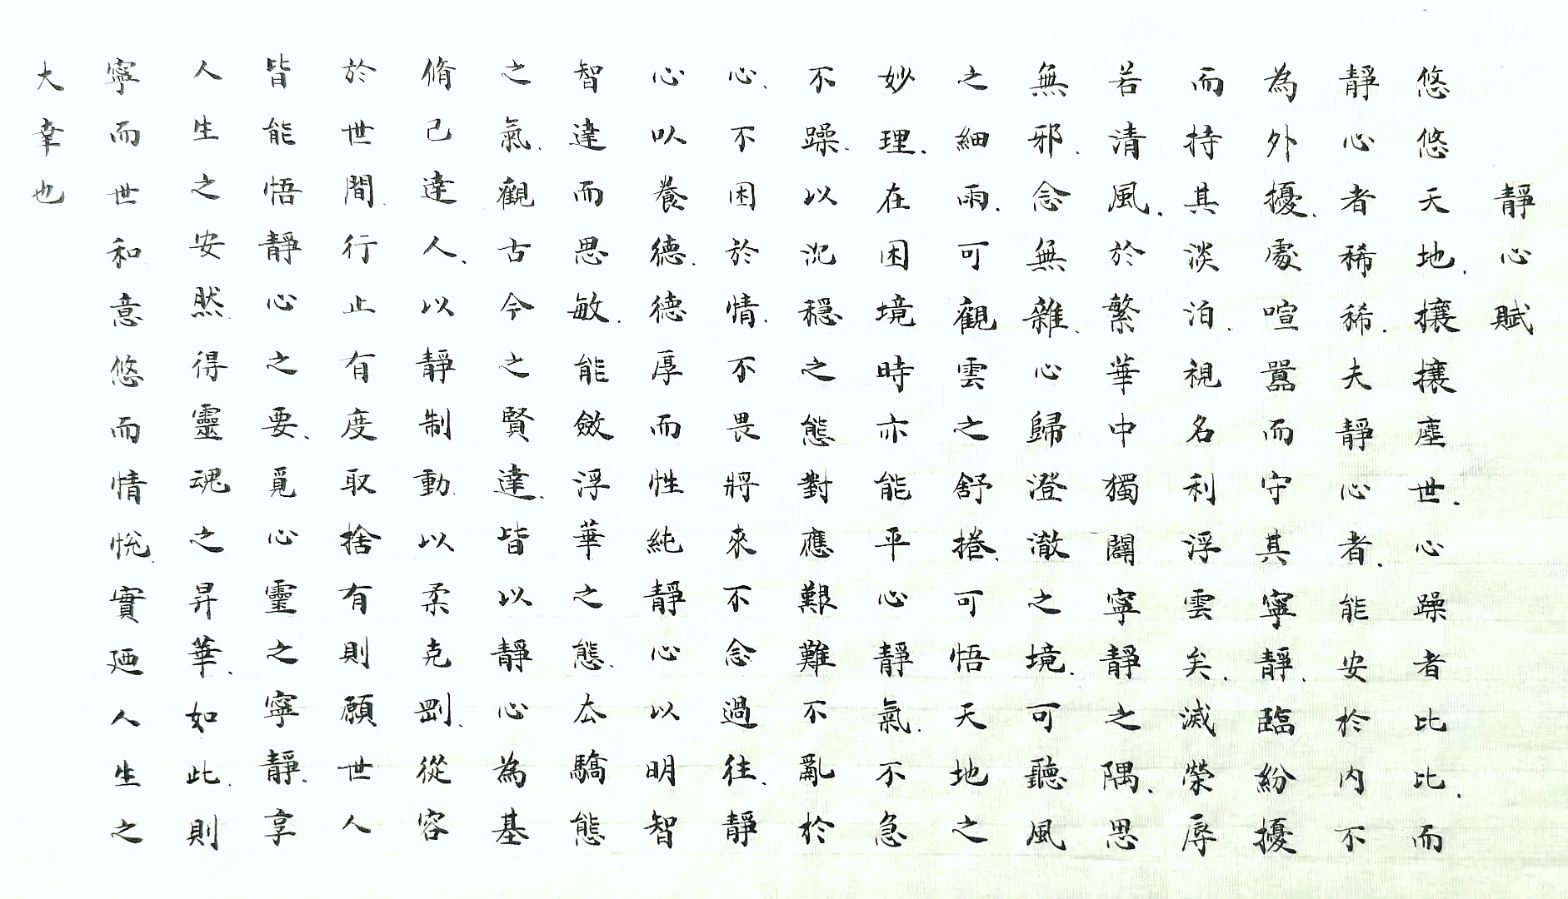 靜心賦
悠悠天地.攘攘塵世.心躁者比比.而
靜心者稀稀.夫靜心者.能安於內不
為外擾.處喧囂而守其寧靜.臨紛擾
而持其淡泊.視名利浮雲矣.滅榮辱
若清風.於繁華中獨闢寧靜之隅.思
無邪.念無雜.心歸澄澈之境.可聽風
之細雨.可觀雲之舒捲.可悟天地之
妙理.在困境時亦能平心靜氣.不急
不躁.以沉穩之態對應艱難不亂於
心.不困於情.不畏將來不念過往.靜
心以養德.德厚而性純靜心以明智
智達而思敏.能斂浮華之態.去驕態
之氣.觀古今之賢達.皆以靜心為基
脩己達人.以靜制動.以柔克剛.從容
於世間.行止有度取捨有則願世人
皆能悟靜心之要.覓心靈之寧靜.享
人生之安然.得靈魂之昇華.如此.則
寧而世和.意悠而情悅.實廼人生之
大幸也